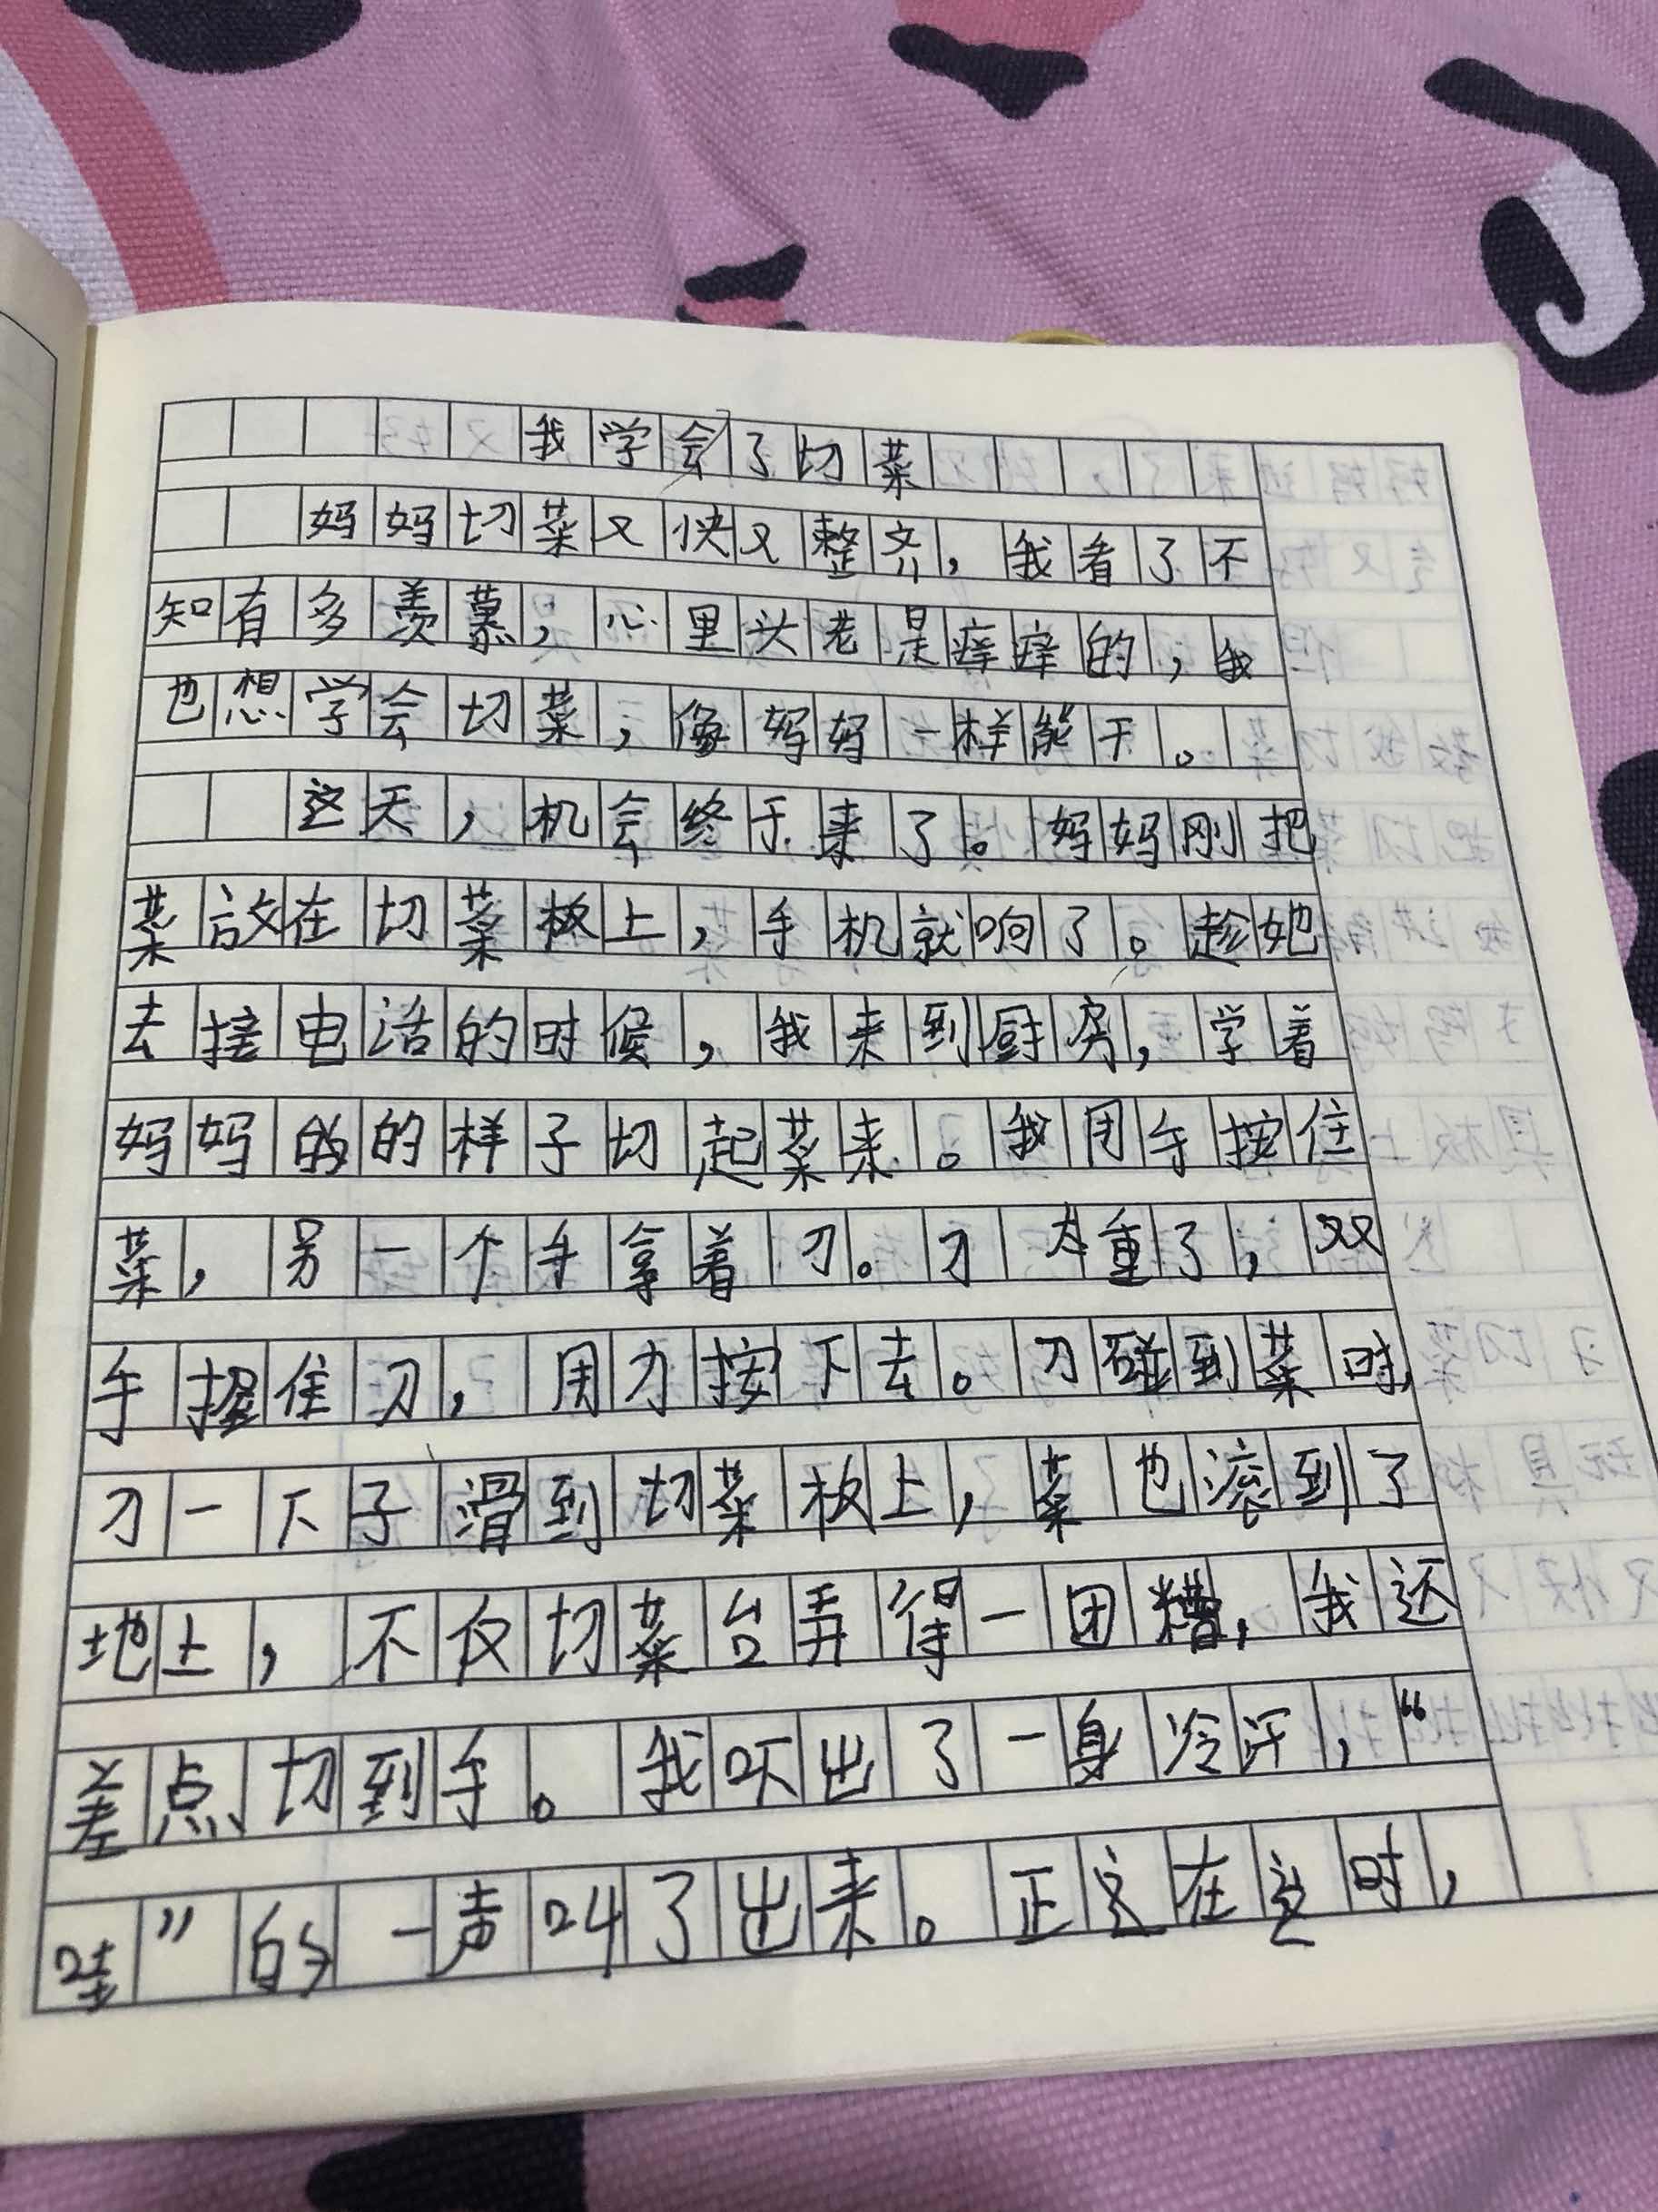 我学会了切菜
妈妈切菜又快又整齐，我看了不
知有多羡慕，心里头老是痒痒的，我
也想学会切菜，像妈妈一样能干。
这天，机会终于来了。妈妈刚把
菜放在切菜板上，手机就响了。趁她
去接电话的时候，我来到厨房，学着
妈妈的的样子切起菜来。我用手按住
菜，另一个手拿着刀。刀太重了，双
手握住刀，用力按下去。刀碰到菜时，
刀一下子滑到切菜板上，菜也滚到了
地上，不仅切菜台弄得一团糟，我还
差点切到手。我吓出了一身冷汗，“
哇”的一声叫了出来。正这在这时，